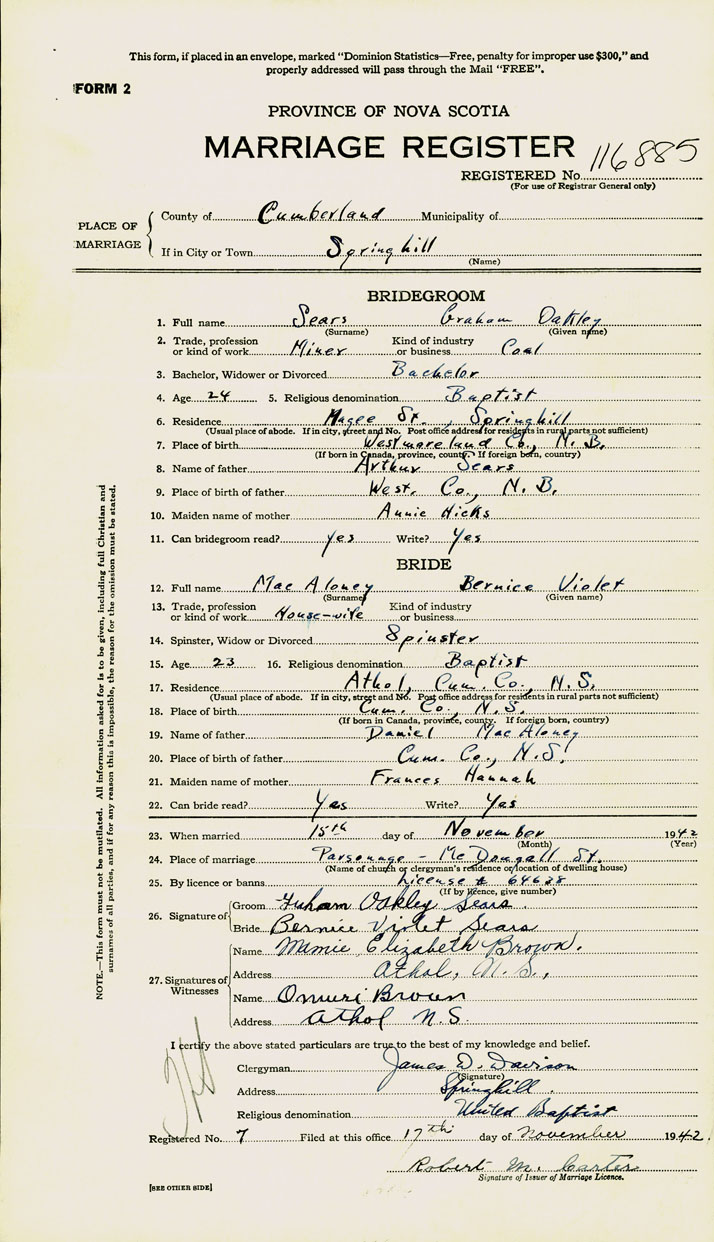 This form, if placed in an envelope, marked "Dominion Statistics—Free, penalty for improper use $300," and
properly addressed will pass through the Mail "FREE".
FORM 2
PROVINCE OF NOVA SCOTIA
MARRIAGE REGISTER
REGISTERED No. 116885
(For use of Registrar General only)
PLACE OF MARRIAGE
County of Cumberland Municipality of
If in City or Town Springhill
(Name)
BRIDEGROOM
1. Full name Sears Graham Oakley
(Surname) (Given name)
2. Trade, profession or kind of work Miner Kind of industry or business Coal
3. Bachelor, Widower or Divorced Bachelor
4. Age 24 5. Religious denomination Baptist
6. Residence Magee St., Springhill
(Usual place of abode. If in city, street and No. Post office address for residents in rural parts not sufficient)
7. Place of birth Westmoreland Co., N.B.
(If born in Canada, province, county. If foreign born, country)
8. Name of father Arthur Sears
9. Place of birth of father West. Co., N.B.
10. Maiden name of mother Annie Hicks
11. Can bridegroom read? Yes Write? Yes
BRIDE
12. Full name Mac Aloney Bernice Violet
(Surname) (Given name)
13. Trade, profession or kind of work House-wife Kind of industry or business
14. Spinster, Widow or Divorced Spinster
15. Age 23 16. Religious denomination Baptist
17. Residence Athol, Cum. Co., N.S.
(Usual place of abode. If in city, street and No. Post office address for residents in rural parts not sufficient)
18. Place of birth Cum. Co., N.S.
(If born in Canada, province, county. If foreign born, country)
19. Name of father Daniel Mac Aloney
20. Place of birth of father Cum. Co., N.S.
21. Maiden name of mother Frances Hannah
22. Can bride read? Yes Write? Yes
23. When married 15th day of November 1942
(Month) (Year)
24. Place of marriage Parsonage - McDougall St.
(Name of church or clergyman's residence or location of dwelling house)
25. By licence or banns License # 64628
(If by licence, give number)
26. Signature of
Groom Graham Oakley Sears
Bride Bernice Violet Sears
27. Signatures of Witnesses
Name Mamie Elizabeth Brown.
Address Athol, N.S.,
Name Brown
Address Athol N.S.
I certify the above stated particulars are true to the best of my knowledge and belief.
Clergyman James D. Davison
(Signature)
Address Springhill.
Religious denomination United Baptist
Registered No. 7 Filed at this office 17th day of November 1942.
Robert M. Carter
Signature of Issuer of Marriage Licence.
[SEE OTHER SIDE]
NOTE.—This form must not be mutilated. All information asked for is to be given, including full Christian and
surnames of all parties, and if for any reason this is impossible, the reason for the omission must be stated.